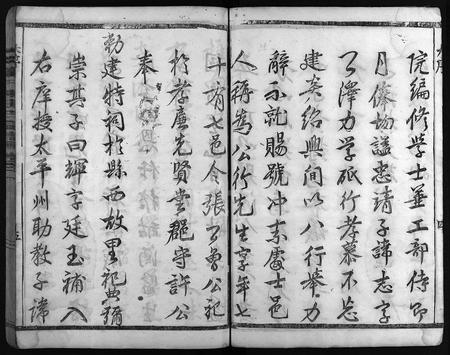 院編修學士兼工部侍郎
月俸初諡忠靖子諱志字
了澤力学砥行孝慕不忘
建炎紹興間以八行舉力
辭不就賜號冲素處士邑
人稱為公行先生享年七
十有七邑令張了曾公祀
於孝廉先賢堂郡守許公
奉
勅建特祠於縣西故里祀典
崇其子曰輝字廷玉補入
右庠授太平州助教子諱